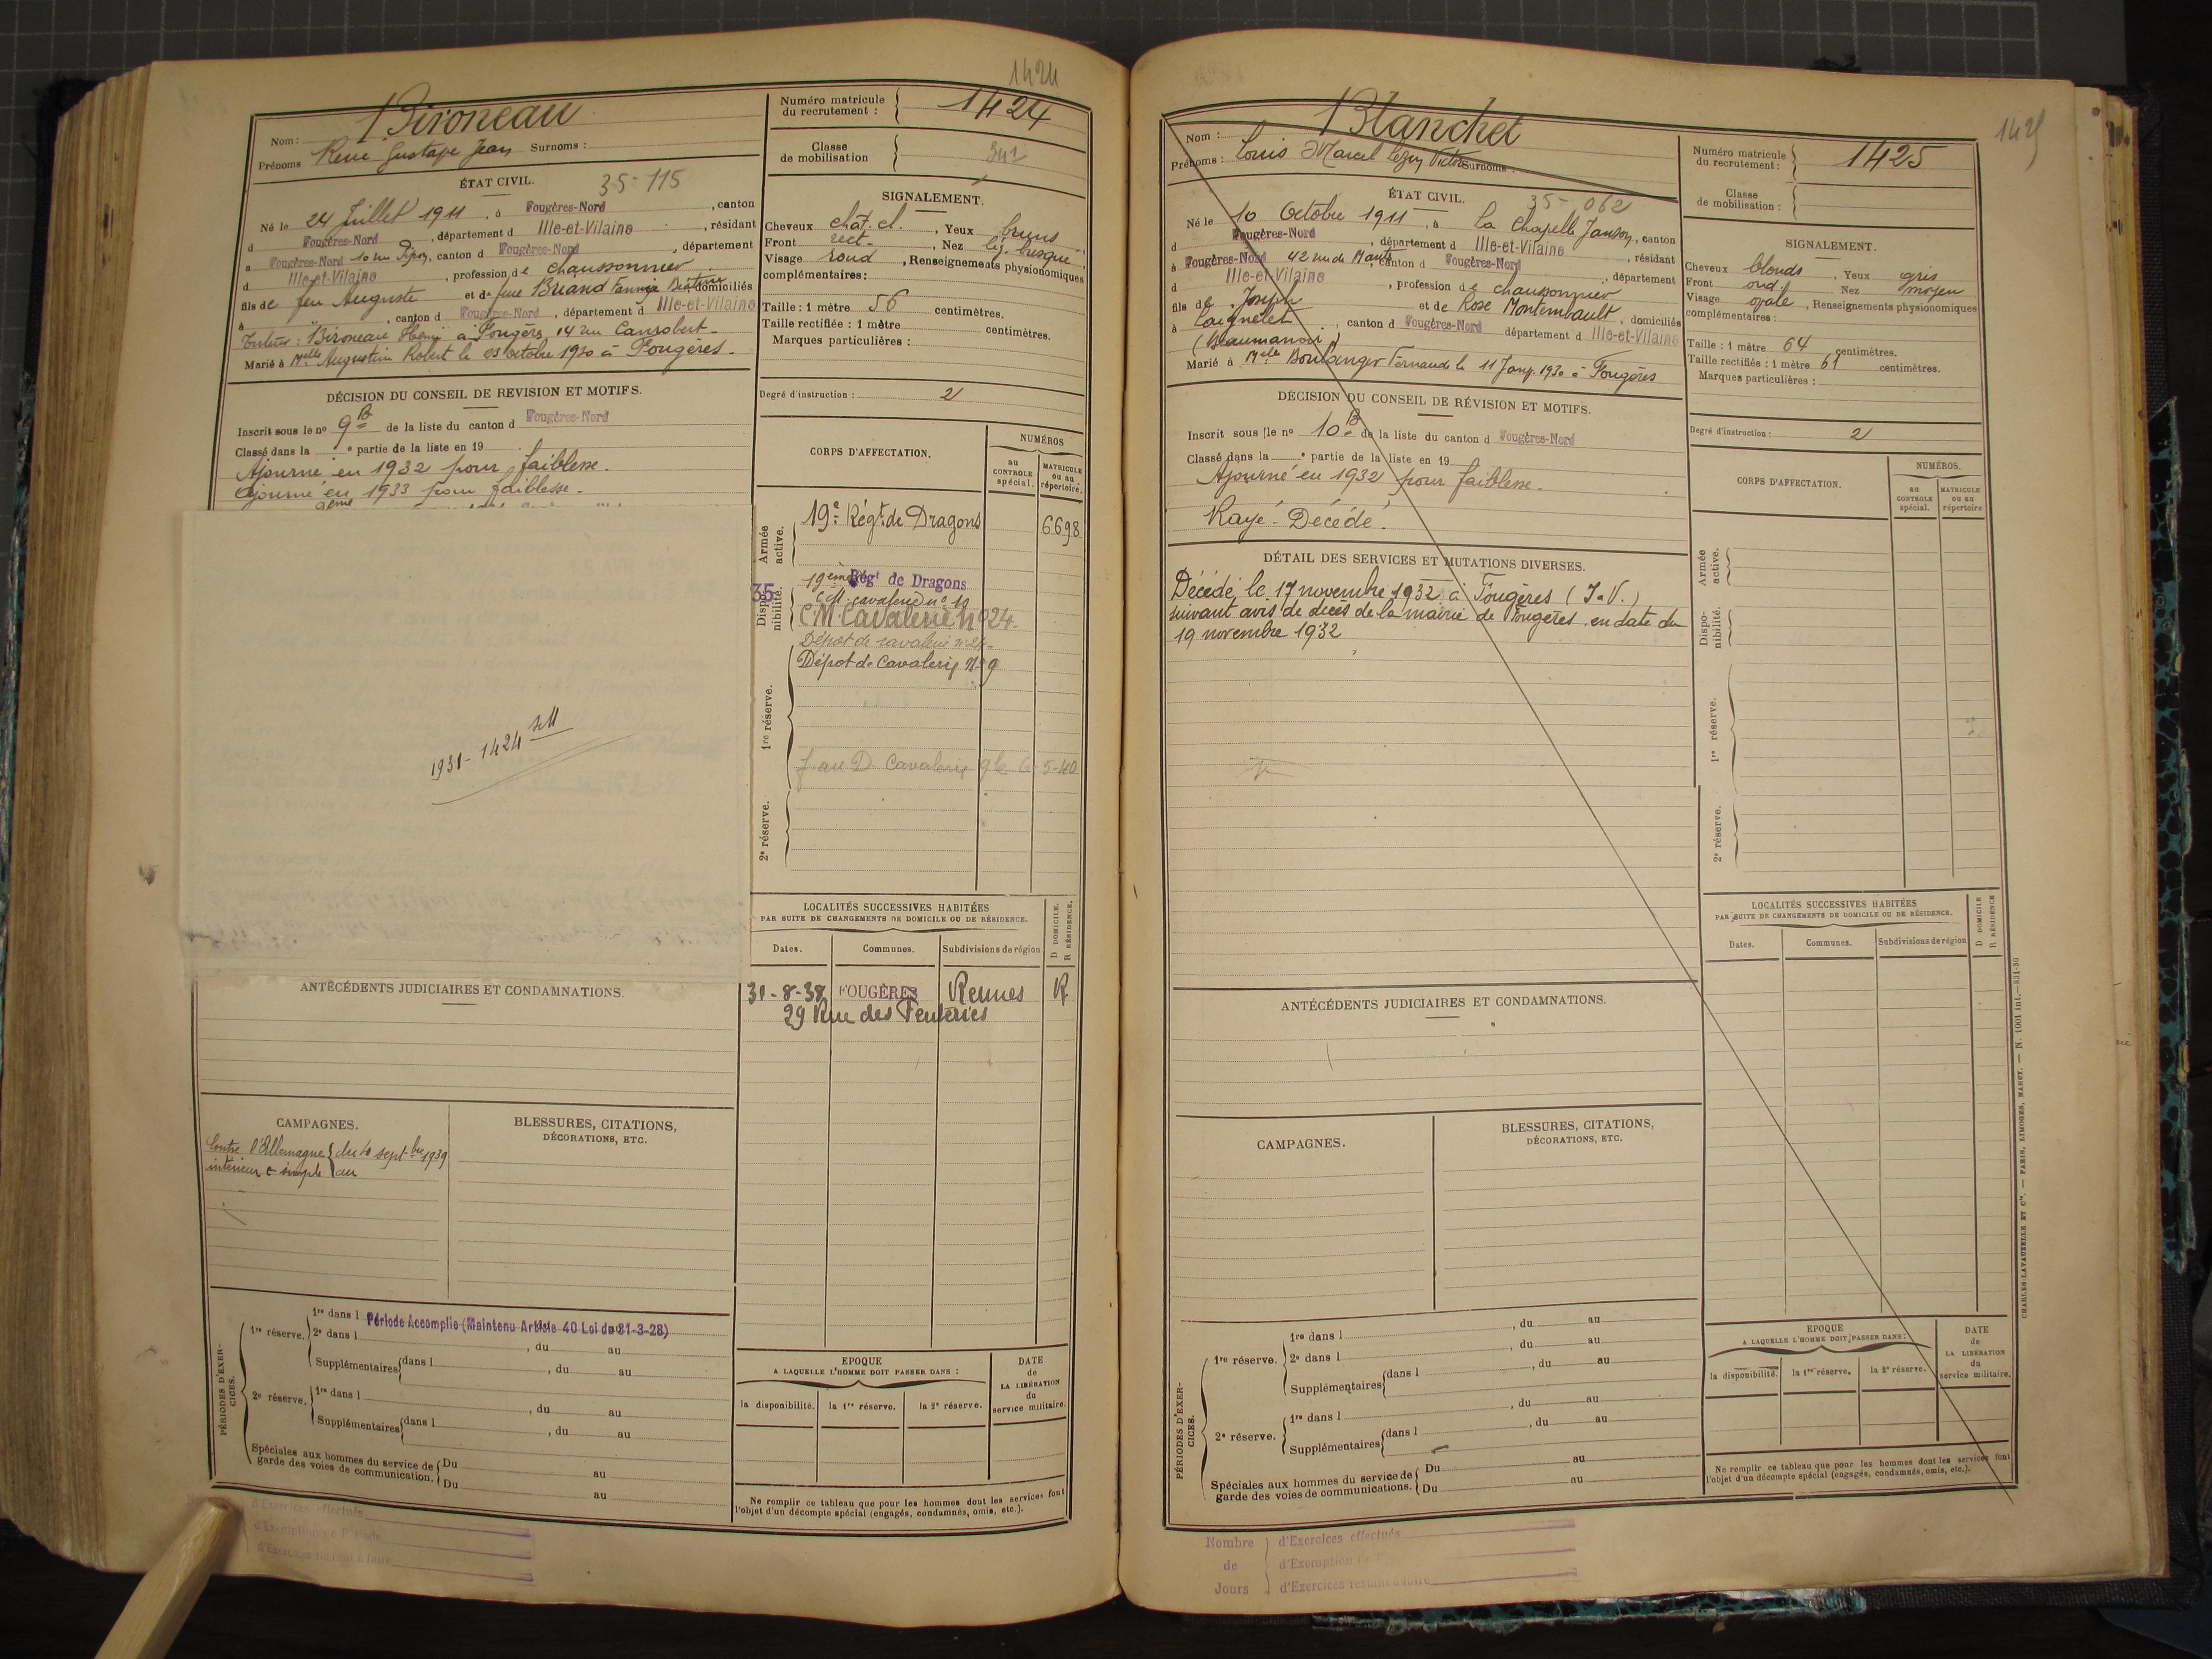 1424
Nom : Bironeau
Prénoms René Gustave Jean Surnoms :
ÉTAT CIVIL. 35-115
Né le 24 Juillet 1911, à Fougères-Nord, canton
d Fougères-Nord, département d Ille-et-Vilaine, résidant
à Fougères-Nord 10 rue Pipon, canton d Fougères-Nord, département
d Ille-et-Vilaine, profession de chaussonnier
fils de feu Auguste et de feue Briand Fannie domiciliés
à " , canton d Fougères-Nord, département d Ille-et-Vilaine
Tuteur : Bironeau Henri à Fougères, 14 rue Canrobert
Marié à Melle Augustine Robert le 25 octobre 1930 à Fougères.
DÉCISION DU CONSEIL DE REVISION ET MOTIFS.
Inscrit sous le no 9 B de la liste du canton d Fougères-Nord
Classé dans la e partie de la liste en 19
Ajourné en 1932 pour faiblesse.
Ajourné en 1933 pour faiblesse.
1931 - 1424
ANTÉCÉDENTS JUDICIAIRES ET CONDAMNATIONS.
CAMPAGNES.
Contre l'Allemagne { du 10 septbre 1939
intérieur c simple { au
BLESSURES, CITATIONS,
DÉCORATIONS, ETC.
PÉRIODES D'EXERCICES.
1re réserve. 1re dans l Période Accomplie (Maintenu Article 40 Loi du 31-3-28)
2e dans l , du au
Supplémentaires { dans l , du au
2e réserve. 1re dans l , du au
Supplémentaires { dans l , du au
Spéciales aux hommes du service de garde des voies de communication. { Du au
Du au
d'Exercices effectués
d'Exemption de Période
d'Exercices restant à faire
Numéro matricule du recrutement : 1424
Classe de mobilisation
SIGNALEMENT.
Cheveux chât. cl., Yeux bruns
Front rect., Nez lég. busqué
Visage rond, Renseignements physionomiques
complémentaires :
Taille : 1 mètre 56 centimètres.
Taille rectifiée : 1 mètre centimètres.
Marques particulières :
Degré d'instruction : 2
CORPS D'AFFECTATION.
NUMÉROS
au CONTROLE spécial.
MATRICULE ou au répertoire.
Armée active.
19e Régt de Dragons 6698
35
Disponibilité.
19ème Régt de Dragons
C.M. cavalerie no 19
C.M. Cavalerie no 24
Dépôt de cavalerie no 24
Dépôt de Cavalerie No 9
1re réserve.
f. au D. Cavalerie 9 le 6-5-40
2e réserve.
LOCALITÉS SUCCESSIVES HABITÉES
PAR SUITE DE CHANGEMENTS DE DOMICILE OU DE RÉSIDENCE.
D DOMICILE.
R RÉSIDENCE.
Dates. Communes. Subdivisions de région
31-8-38 FOUGÈRES Rennes R
29 Rue des Feuteries
EPOQUE
A LAQUELLE L'HOMME DOIT PASSER DANS :
la disponibilité. la 1re réserve. la 2e réserve.
DATE de LA LIBÉRATION du service militaire.
Ne remplir ce tableau que pour les hommes dont les services font
l'objet d'un décompte spécial (engagés, condamnés, omis, etc.).
1425
Nom : Blanchet
Prénoms : Louis Marcel Victor Surnoms :
ÉTAT CIVIL. 35-062
Né le 10 Octobre 1911, à La Chapelle Janson, canton
d Fougères-Nord, département d Ille-et-Vilaine, résidant
à Fougères-Nord 42 rue de Nantes, canton d Fougères-Nord, département
d Ille-et-Vilaine, profession de chaussonnier
fils de Joseph et de Rose Montembault, domiciliés
à Laignelet, canton d Fougères-Nord département d Ille-et-Vilaine
(Beaumanoir)
Marié à Melle Boulanger Fernande le 11 Janv. 1930 à Fougères
DÉCISION DU CONSEIL DE RÉVISION ET MOTIFS.
Inscrit sous le no 10 B de la liste du canton d Fougères-Nord
Classé dans la e partie de la liste en 19
Ajourné en 1932 pour faiblesse.
Rayé - Décédé.
DÉTAIL DES SERVICES ET MUTATIONS DIVERSES.
Décédé le 17 novembre 1932 à Fougères (I.V.)
suivant avis de décès de la mairie de Fougères en date du
19 novembre 1932
ANTÉCÉDENTS JUDICIAIRES ET CONDAMNATIONS.
CAMPAGNES.
BLESSURES, CITATIONS,
DÉCORATIONS, ETC.
PÉRIODES D'EXERCICES.
1re réserve. 1re dans l , du au
2e dans l , du au
Supplémentaires { dans l , du au
2e réserve. 1re dans l , du au
Supplémentaires { dans l , du au
Spéciales aux hommes du service de garde des voies de communications. { Du au
Du au
Nombre de Jours
d'Exercices effectués
d'Exemption de P
d'Exercices restant à faire
Numéro matricule du recrutement : 1425
Classe de mobilisation :
SIGNALEMENT.
Cheveux blonds, Yeux gris
Front ord. Nez moyen
Visage ovale, Renseignements physionomiques
complémentaires :
Taille : 1 mètre 64 centimètres.
Taille rectifiée : 1 mètre 61 centimètres.
Marques particulières :
Degré d'instruction : 2
CORPS D'AFFECTATION.
NUMÉROS.
au CONTROLE spécial.
MATRICULE ou au répertoire
Armée active.
Disponibilité.
1re réserve.
2e réserve.
LOCALITÉS SUCCESSIVES HABITÉES
PAR SUITE DE CHANGEMENTS DE DOMICILE OU DE RÉSIDENCE.
D DOMICILE
R RÉSIDENCE
Dates. Communes. Subdivisions de région
EPOQUE
A LAQUELLE L'HOMME DOIT PASSER DANS :
la disponibilité. la 1re réserve. la 2e réserve.
DATE de LA LIBÉRATION du service militaire.
Ne remplir ce tableau que pour les hommes dont les services font
l'objet d'un décompte spécial (engagés, condamnés, omis, etc.).
CHARLES-LAVAUZELLE ET Cie. — PARIS, LIMOGES, NANCY. — N. 1001 int.—831-30